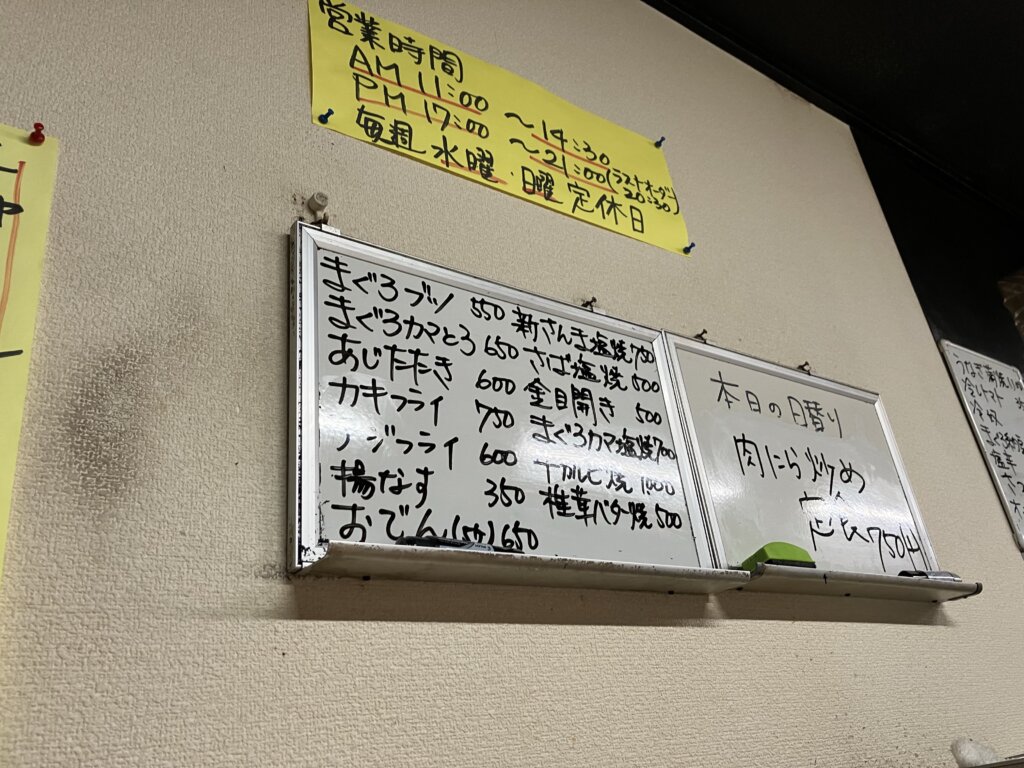 営業時間
AM 11:00 ~14:30
PM 17:00 ~21:00(ラストオーダー 20:30)
毎週 水曜・日曜 定休日
まぐろブツ 550
まぐろカマとろ 650
あじたたき 600
カキフライ 750
アジフライ 600
揚なす 350
おでん 650
新さんま塩焼 750
さば塩焼 500
金目開き 500
まぐろカマ塩焼 700
カルビ焼 1000
椎茸バター焼 500
本日の日替り
肉にら炒め
定食 750円
冷トマト
冷奴